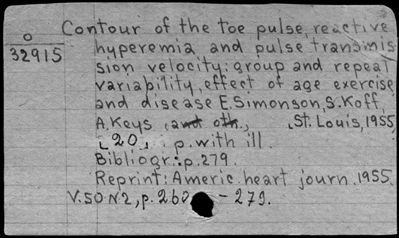 O Contour of the toe pulse, reactive
32915 hyperemia and pulse transmis
sion velocity: group and repeat
variability, effect of age exercise
and disease E. Simonson, S. Koff,
A. Keys, and oth., St. Louis, 1955
[20] p. with ill.
Bibliogr.: p. 279.
Reprint: Americ. heart journ. 1955.
V. 50 N 2, p. 260 - 279.